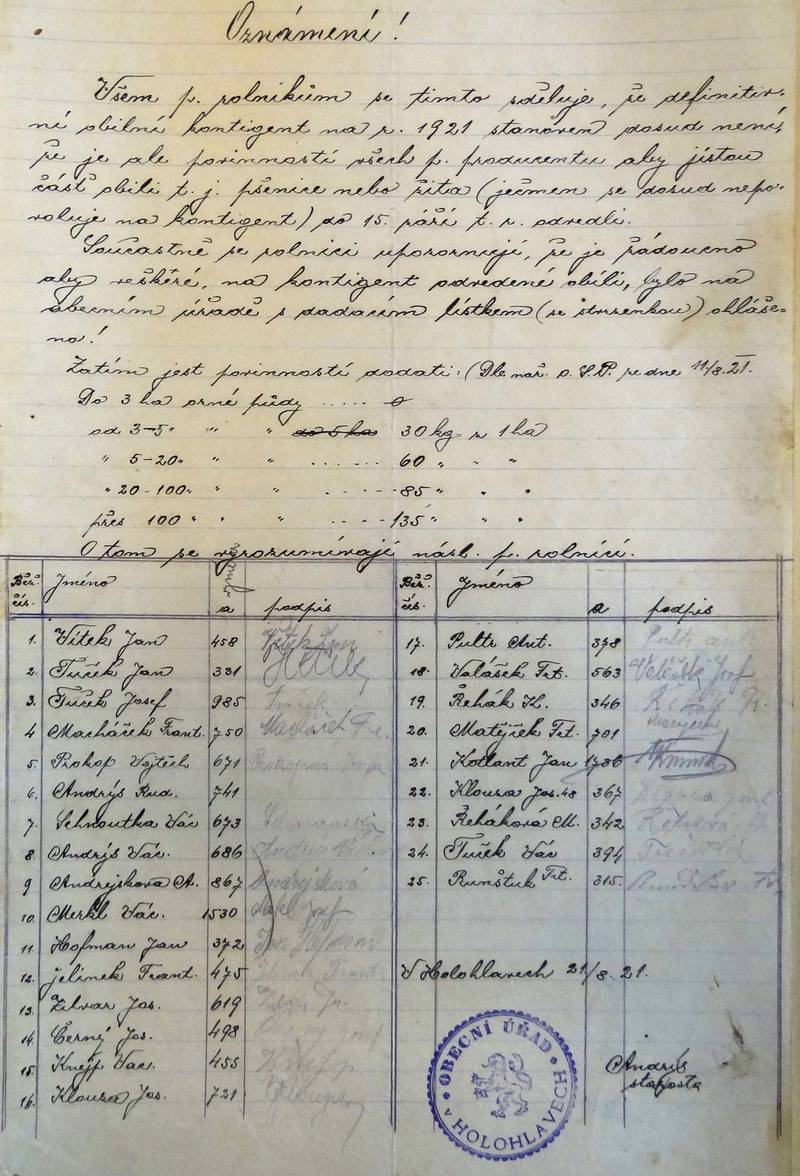 Oznámení!
Všem p. rolníkům se tímto sděluje, že definitiv-
ní obilní kontigent na r. 1921 stanoven dosud není,
že je ale povinností všech p. producentu aby jistou
část obilí t. j. pšenice nebo žita (ječmen se dosud nepo-
voluje na kontigent) do 15. září t. r. odvedli.
Součastně se rolníci upozorňují, že je žádoucno
aby veškéré, na kontigent odvedené obilí, bylo na
obecním úřadě s dodacím lístkem (se stvrzenkou) ohláše-
no!
Zatím jest povinností dodati: (Dle nař. o. S.P. ze dne 11/8. 21.
Do 3 ha orné půdy ..... 0
od 3-5 " " " do 5 ha 30 kg z 1 ha
" 5-20 " " " ...... 60 " " "
" 20-100 " " " ..... 85 " " "
přes 100 " " " .... 135 " " "
O tom se vyrozumívají násl. p. rolníci.
Běž. čís. Jméno a podpis Běž. čís. Jméno a podpis
1. Vítek Jan 458 Vítek Jan 17. Pultr Ant. 378 Pultr
2. Tuček Jan 331 18. Valášek Frt. 563 Josf
3. Tuček Josef 985 Tuček 19. Řehák Kl. 346 Řehák
4 Macháček Frant. 750 Macháček Fr. 20. Matějček Frt. 701
5. Prokop Vojtěch 671 Prokopová 21. Kotlant Jan 1736
6. Andrýs Rud. 741 22. Klouza Jos. 48 367 Klouza Josef
7. Sehnoutka Vác 673 23. Řeháková M. 342 Řeháková
8. Andrýs Vác. 686 Andrýs 24. Tuček Vác 394
9 Andrejskova A. 867 Andrejsková 25. Runštuk Frt. 315.
10. Merkl Vác. 1530 Merkl Josef
11. Hofman Jan 372 Jan Hofman
12. Jelínek Frant. 475 Frant. V Holohlavech 21/8. 21.
13. Zilvar Jos. 619 Zilvar Jo.
14. Černý Jos. 498
15. Knejp Vac. 455
16. Klouza Jos. 721
Andrýs
starosta
OBECNÍ ÚŘAD
V HOLOHLAVECH